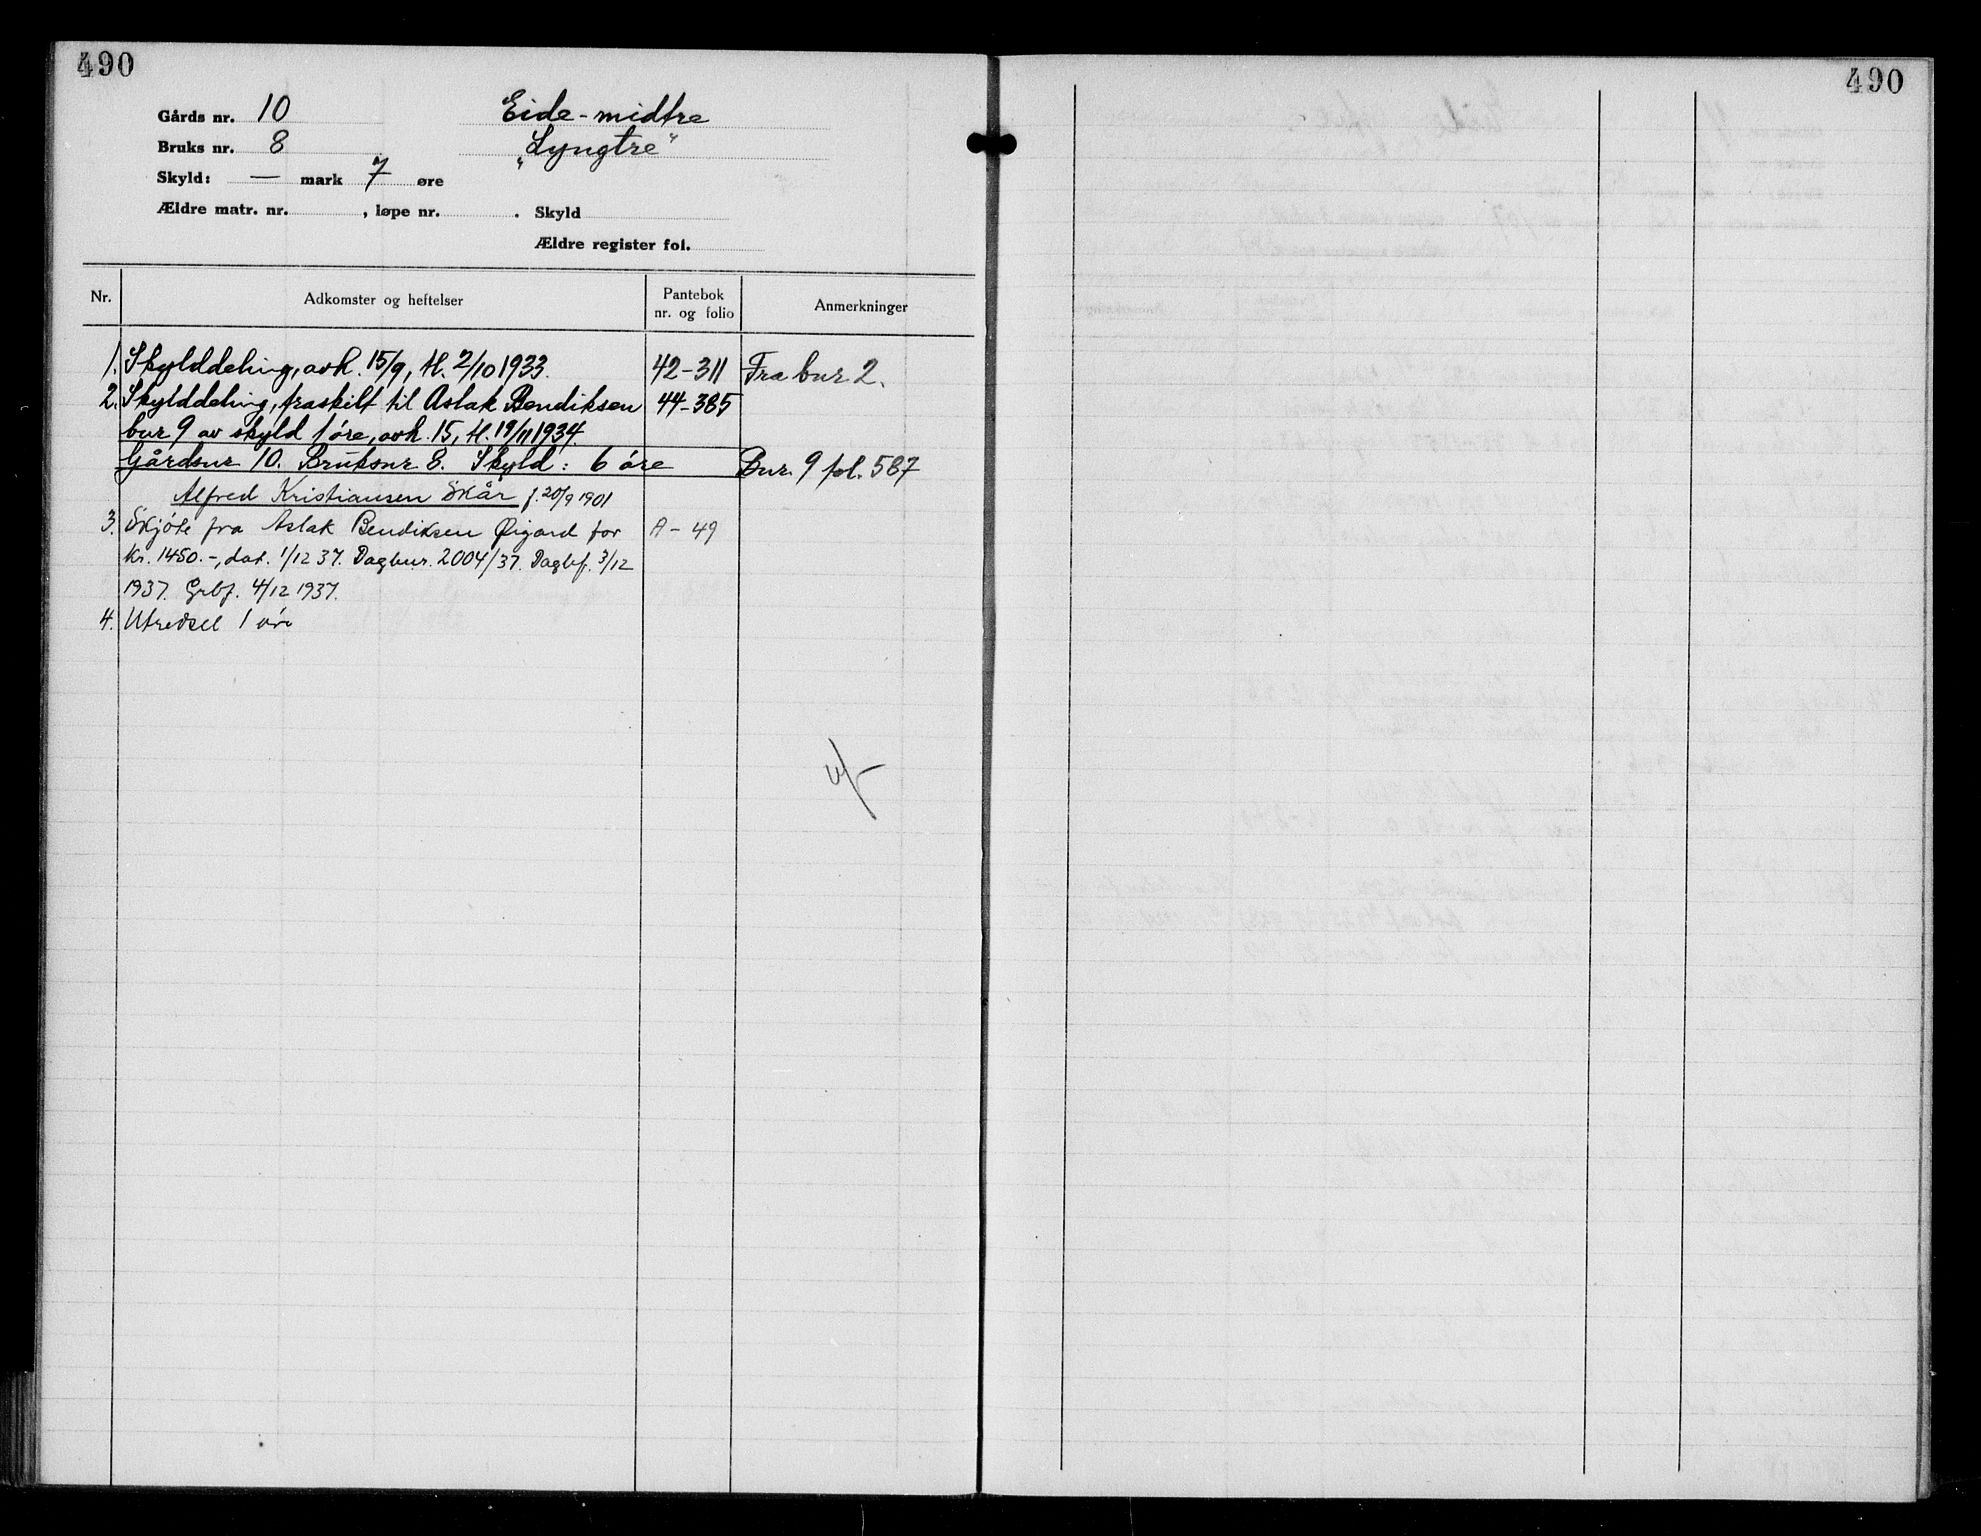 490
490
Gårds nr. 10 Eide-midtre
Bruks nr. 8 "Lyngtre"
Skyld: — mark 7 øre
Ældre matr. nr. , løpe nr. . Skyld
Ældre register fol.
Nr. Adkomster og heftelser Pantebok nr. og folio Anmerkninger
1. Skylddeling, avh. 15/9, tl. 2/10 1933. 42-311 Fra bnr 2.
2. Skylddeling, fraskilt til Aslak Bendiksen 44-385
bnr 9 av skyld 1 øre, avh. 15, tl. 19/11 1934.
Gårdsnr 10. Bruksnr 8. Skyld: 6 øre Bnr. 9 fol. 587
Alfred Kristiansen Skår f. 20/9 1901
3. Skjöte fra Aslak Bendiksen Øigard for A-49
kr. 1450.-, dat. 1/12 37. Dagbnr. 2004/37. Dagbf. 3/12
1937. Grbf. 4/12 1937.
4. Utredsel 1 øre